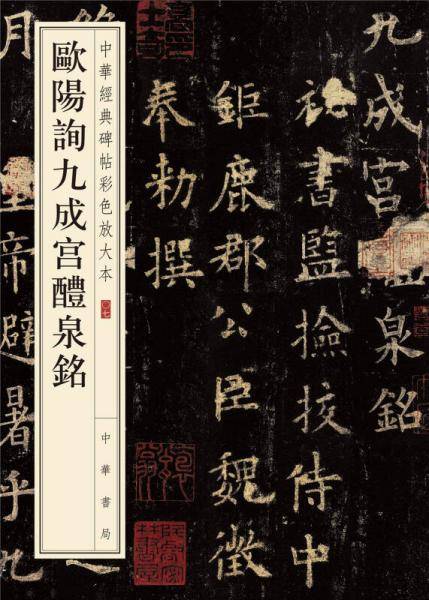 九成宫泉銘
秘書監撿挍侍中
鉅鹿郡公臣魏徵
奉勑撰
中華經典碑帖彩色放大本
〇七
中華書局
歐陽詢九成宫醴泉銘
月皇帝避暑乎九